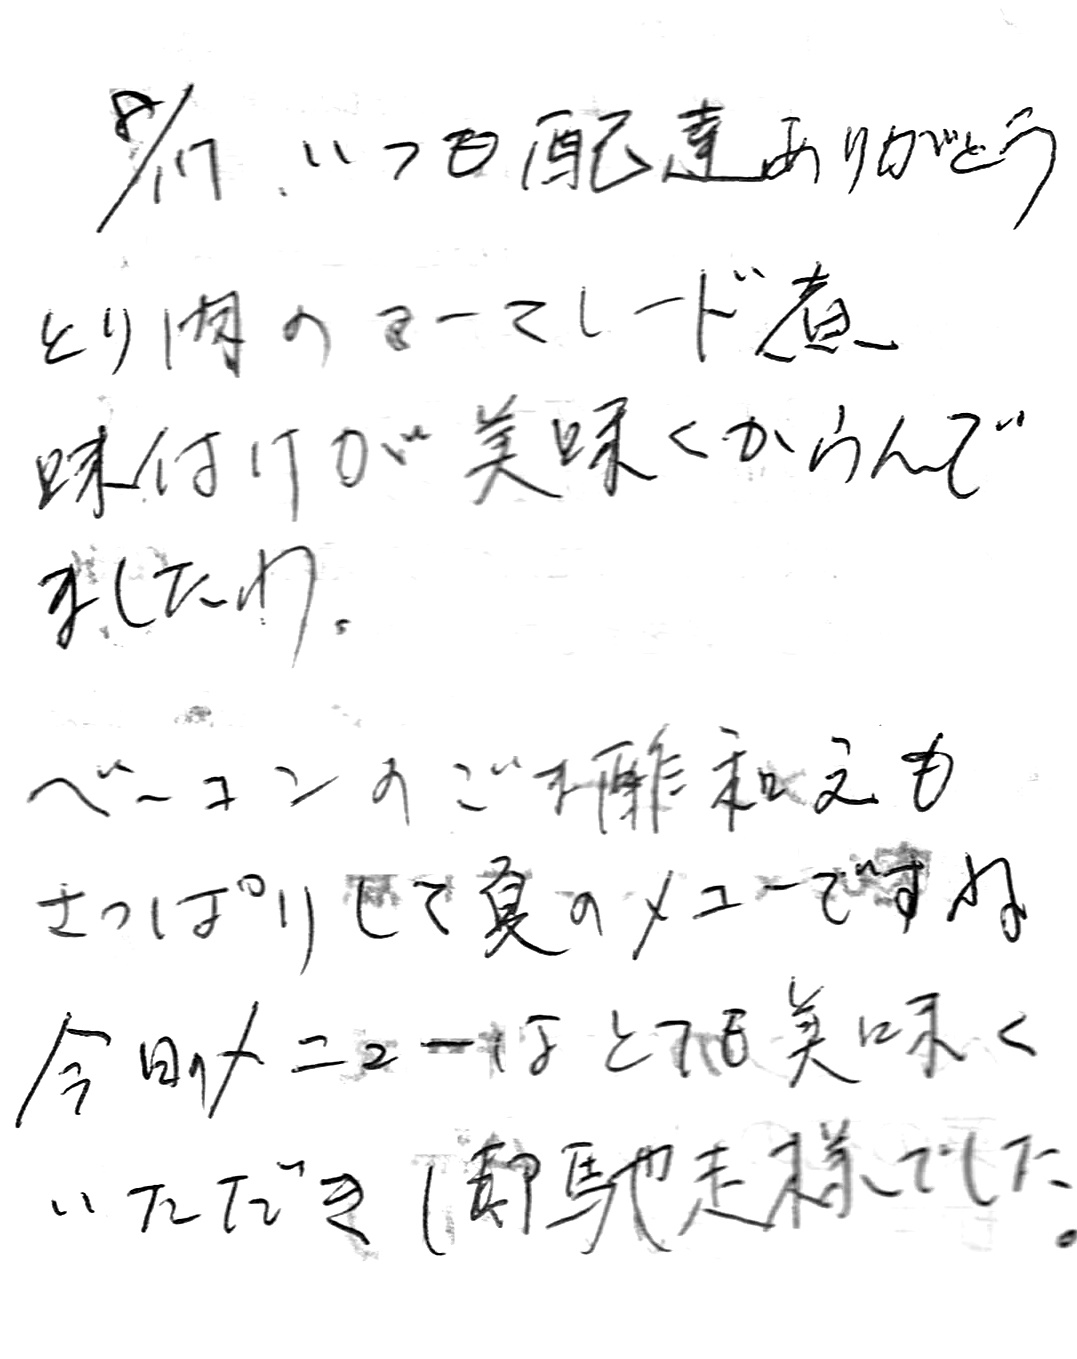 8/17 いつも配達ありがとう
とり肉のマーマレード煮
味付けが美味くからんで
ましたわ。
ベーコンのごま酢和えも
さっぱりして夏のメニューですね
今日のメニューはとても美味く
いただきし御馳走様でした。